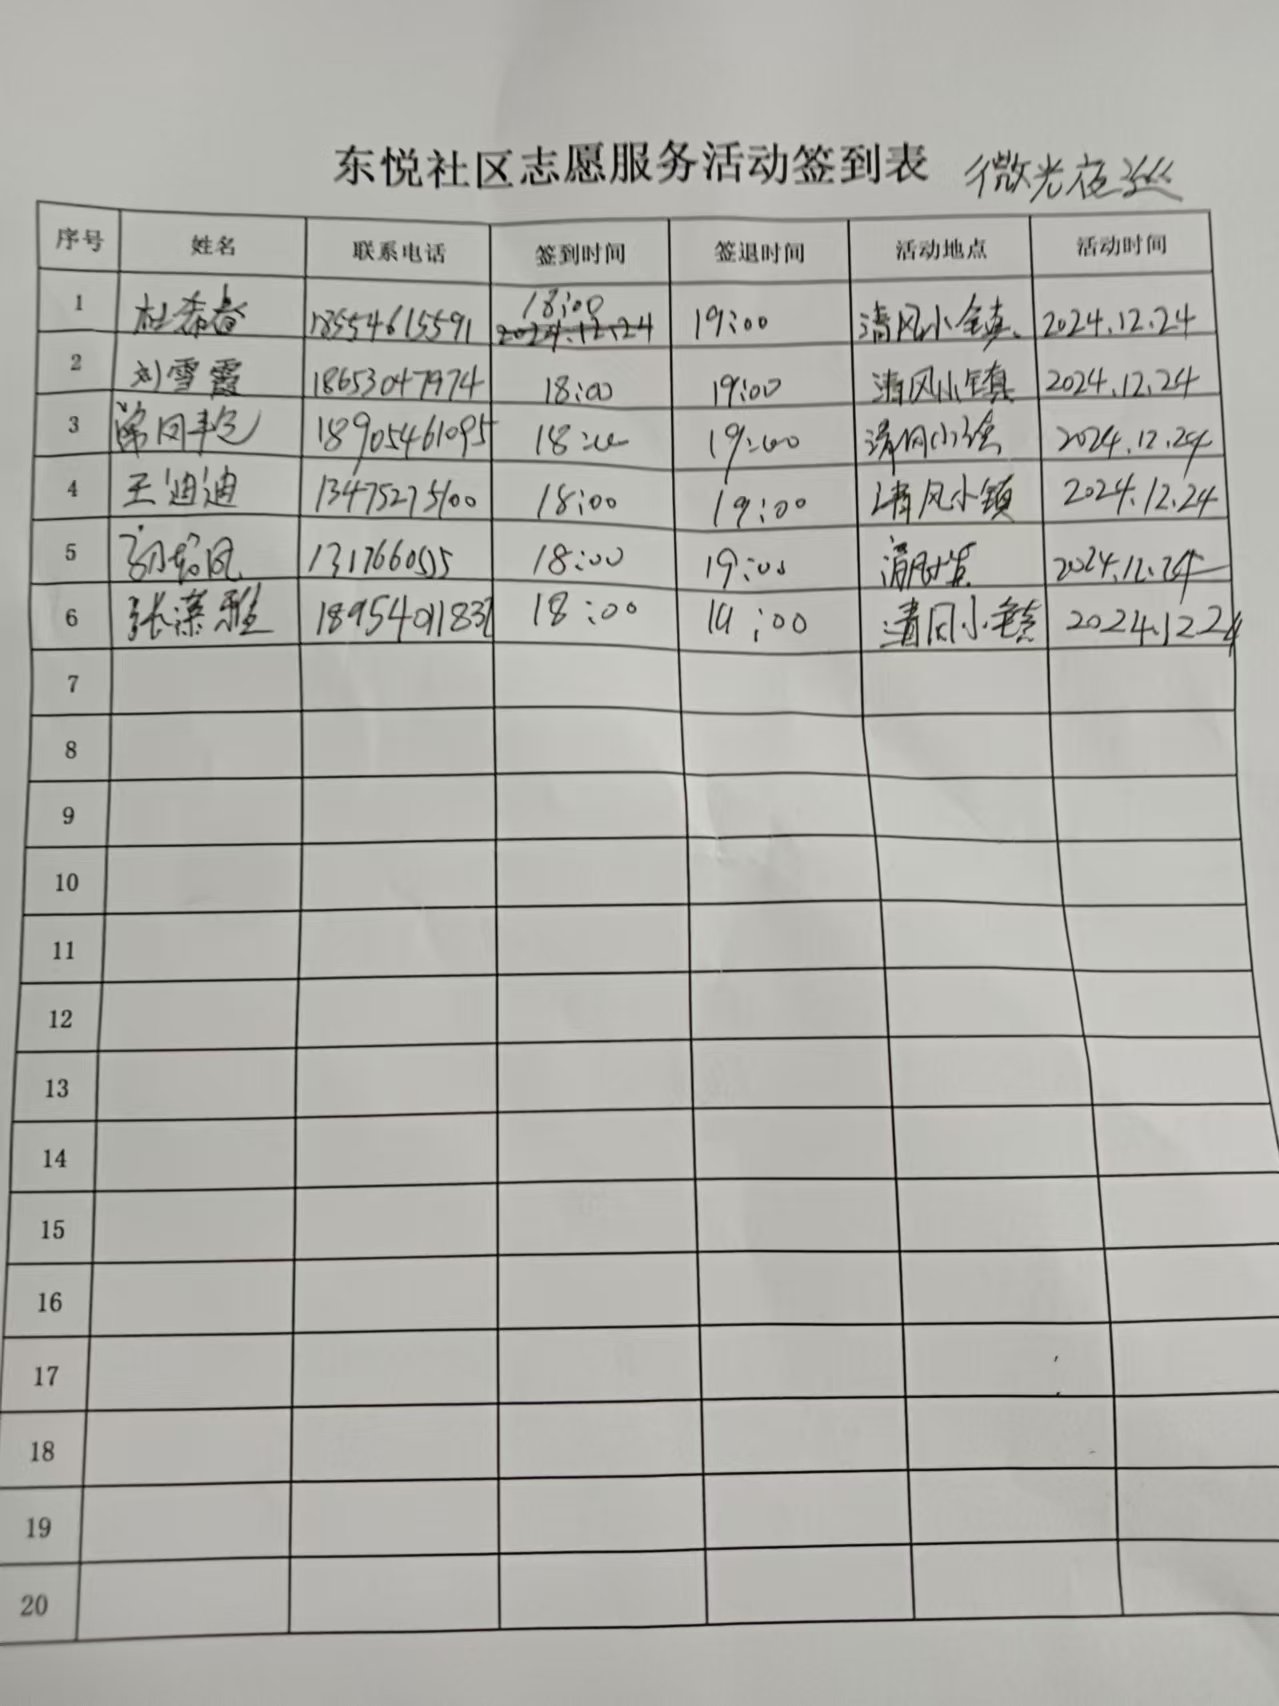 东悦社区志愿服务活动签到表 微光夜巡
序号 姓名 联系电话 签到时间 签退时间 活动地点 活动时间
1 杜秀春 18554615591 18:00 2024.12.24 19:00 清风小镇 2024.12.24
2 刘雪霞 18653047974 18:00 19:00 清风小镇 2024.12.24
3 18905461095 18:00 19:00 清风小镇 2024.12.24
4 王迪迪 13475275100 18:00 19:00 清风小镇 2024.12.24
5 18:00 19:00 2024.12.24
6 张潆雅 18:00 19:00 清风小镇 2024.12.24
7
8
9
10
11
12
13
14
15
16
17
18
19
20